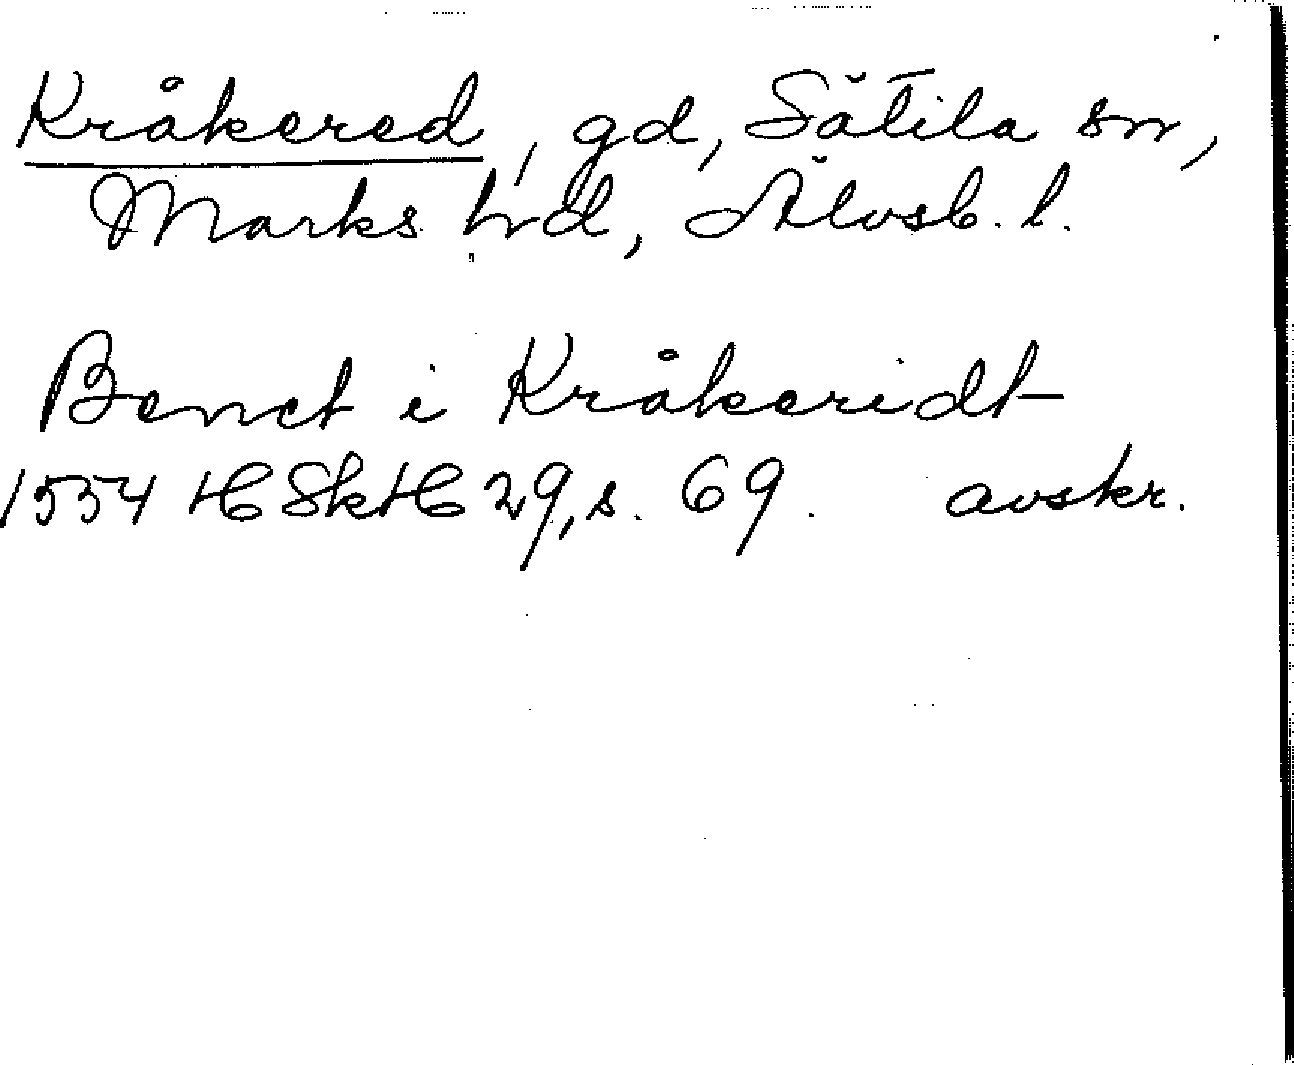 Kråkered, gd, Sätila sn,
Marks hd, Älvsb. l.
Benct i Kråkeridt
1554 HSkH 29, s. 69. avskr.